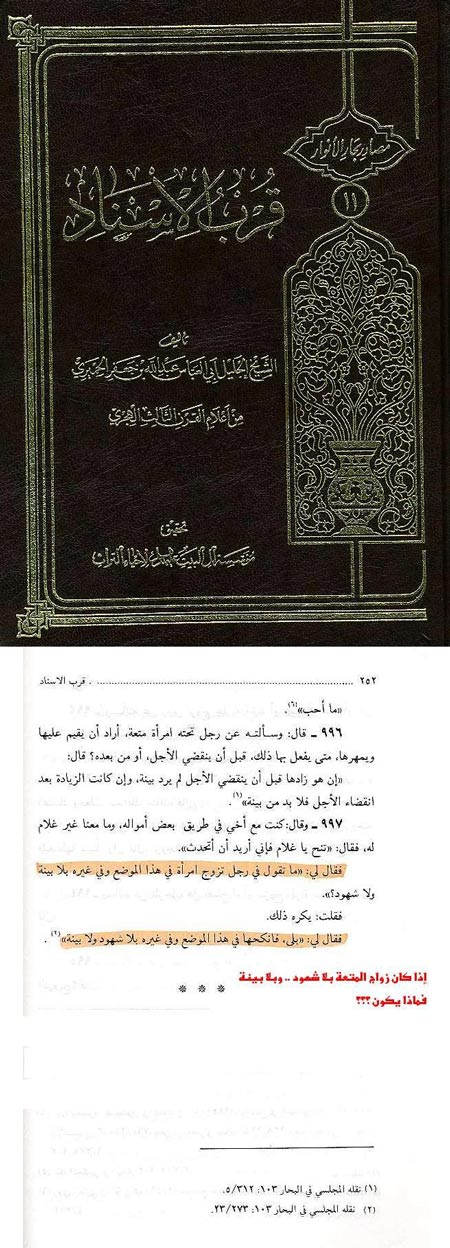 مصادر بحار الأنوار
١١
قرب الإسناد
تأليف
الشيخ الجليل أبي العباس عبد الله بن جعفر الحميري
من أعلام القرن الثالث الهجري
تحقيق
مؤسسة آل البيت عليهم السلام لإحياء التراث
٢٥٢ ........................................................ قرب الاسناد
«ما أحب»(٦).
٩٩٦ ـ قال: وسألته عن رجل تحته امرأة متعة، أراد أن يقيم عليها
ويمهرها، متى يفعل بها ذلك، قبل أن ينقضي الأجل، أو من بعده؟ قال:
«إن هو زادها قبل أن ينقضي الأجل لم يرد بينة، وإن كانت الزيادة بعد
انقضاء الأجل فلا بد من بينة»(١).
٩٩٧ ـ وقال: كنت مع أخي في طريق بعض أمواله، وما معنا غير غلام
له، فقال: «تنح يا غلام فإني أريد أن أتحدث».
فقال لي: «ما تقول في رجل تزوج امرأة في هذا الموضع وفي غيره بلا بينة
ولا شهود؟».
فقلت: يكره ذلك.
فقال لي: «بلى، فانكحها في هذا الموضع وفي غيره بلا شهود ولا بينة»(٢).
إذا كان زواج المتعة بلا شهود .. وبلا بينة
فماذا يكون ؟؟؟
* * *
(١) نقله المجلسي في البحار ١٠٣: ٥/٣١٢.
(٢) نقله المجلسي في البحار ١٠٣: ٢٣/٢٧٣.